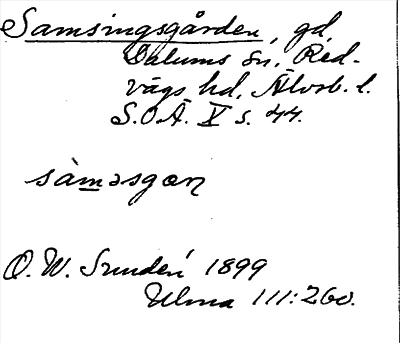 Samsingsgården, gd,
Dalums sn, Red-
vägs hd, Älvsb. l.
S.O.Ä. X s. 44.
sàmǝsgan
O. W. Sundén 1899
Ulma 111:260.